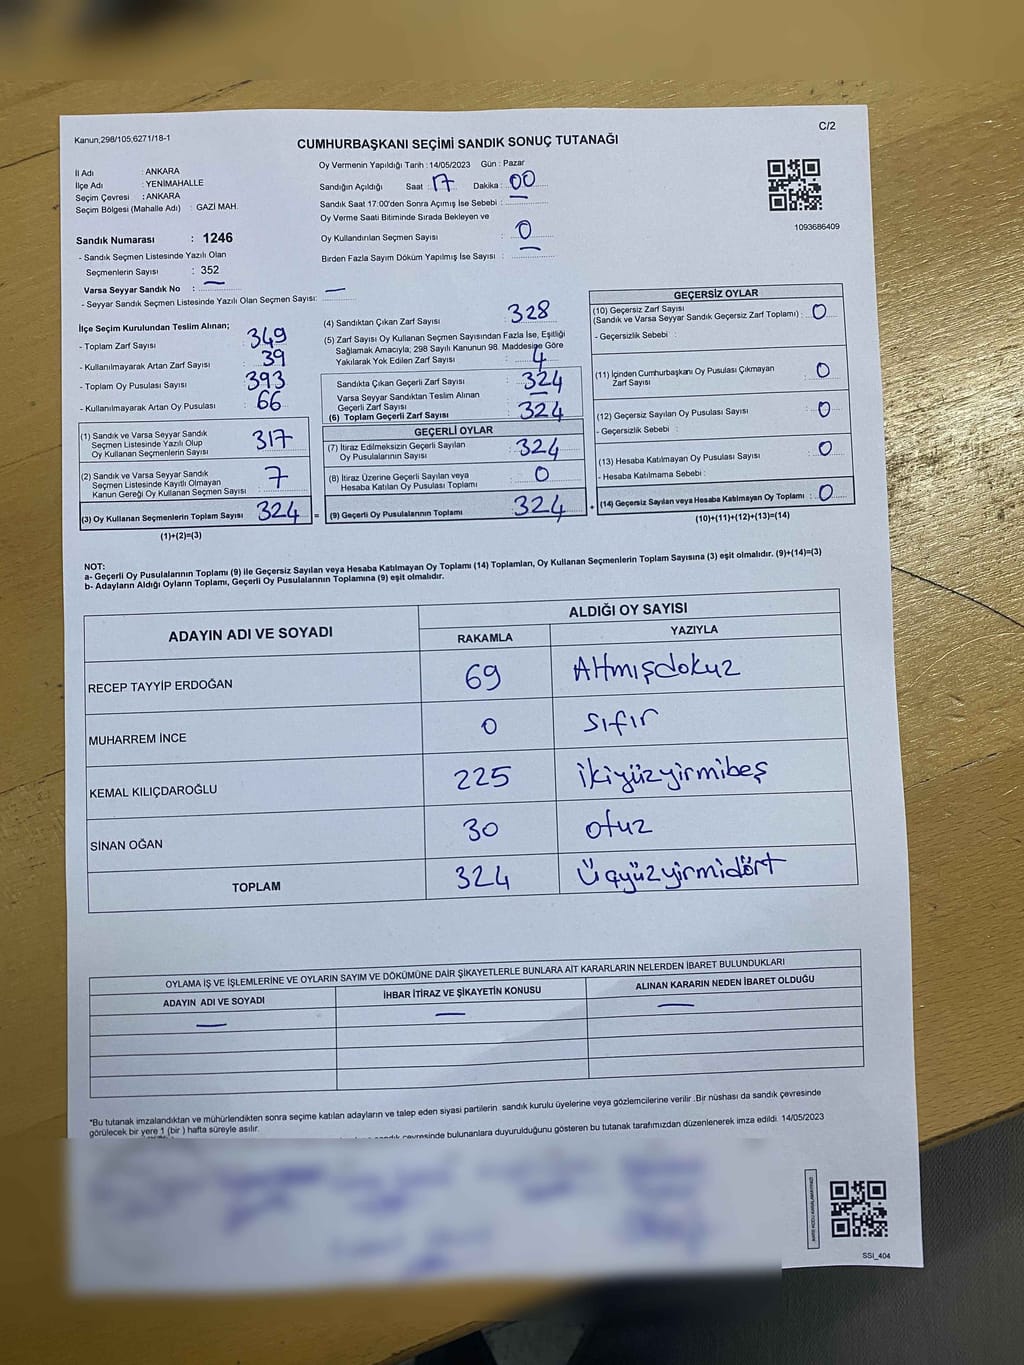 Kanun,298/105;6271/18-1
C/2
CUMHURBAŞKANI SEÇİMİ SANDIK SONUÇ TUTANAĞI
İl Adı : ANKARA
İlçe Adı : YENİMAHALLE
Seçim Çevresi : ANKARA
Seçim Bölgesi (Mahalle Adı) : GAZİ MAH.
Sandık Numarası : 1246
- Sandık Seçmen Listesinde Yazılı Olan
Seçmenlerin Sayısı : 352
Varsa Seyyar Sandık No : —
- Seyyar Sandık Seçmen Listesinde Yazılı Olan Seçmen Sayısı: —
Oy Vermenin Yapıldığı Tarih :14/05/2023 Gün : Pazar
Sandığın Açıldığı Saat : 17 Dakika : 00
Sandık Saat 17:00'den Sonra Açımış İse Sebebi : —
Oy Verme Saati Bitiminde Sırada Bekleyen ve
Oy Kullandırılan Seçmen Sayısı : 0
Birden Fazla Sayım Döküm Yapılmış İse Sayısı : —
1093686409
İlçe Seçim Kurulundan Teslim Alınan;
- Toplam Zarf Sayısı : 349
- Kullanılmayarak Artan Zarf Sayısı : 39
- Toplam Oy Pusulası Sayısı : 393
- Kullanılmayarak Artan Oy Pusulası : 66
(1) Sandık ve Varsa Seyyar Sandık
Seçmen Listesinde Yazılı Olup
Oy Kullanan Seçmenlerin Sayısı : 317
(2) Sandık ve Varsa Seyyar Sandık
Seçmen Listesinde Kayıtlı Olmayan
Kanun Gereği Oy Kullanan Seçmen Sayısı : 7
(3) Oy Kullanan Seçmenlerin Toplam Sayısı : 324 =
(1)+(2)=(3)
(4) Sandıktan Çıkan Zarf Sayısı : 328
(5) Zarf Sayısı Oy Kullanan Seçmen Sayısından Fazla İse, Eşitliği
Sağlamak Amacıyla, 298 Sayılı Kanunun 98. Maddesine Göre
Yakılarak Yok Edilen Zarf Sayısı : 4
Sandıkta Çıkan Geçerli Zarf Sayısı : 324
Varsa Seyyar Sandıktan Teslim Alınan
Geçerli Zarf Sayısı : —
(6) Toplam Geçerli Zarf Sayısı : 324
GEÇERLİ OYLAR
(7) İtiraz Edilmeksizin Geçerli Sayılan
Oy Pusulalarının Sayısı : 324
(8) İtiraz Üzerine Geçerli Sayılan veya
Hesaba Katılan Oy Pusulası Toplamı : 0
(9) Geçerli Oy Pusulalarının Toplamı : 324 +
GEÇERSİZ OYLAR
(10) Geçersiz Zarf Sayısı
(Sandık ve Varsa Seyyar Sandık Geçersiz Zarf Toplamı) : 0
- Geçersizlik Sebebi :
(11) İçinden Cumhurbaşkanı Oy Pusulası Çıkmayan
Zarf Sayısı : 0
(12) Geçersiz Sayılan Oy Pusulası Sayısı : 0
- Geçersizlik Sebebi :
(13) Hesaba Katılmayan Oy Pusulası Sayısı : 0
- Hesaba Katılmama Sebebi :
(14) Geçersiz Sayılan veya Hesaba Katılmayan Oy Toplamı : 0
(10)+(11)+(12)+(13)=(14)
NOT:
a- Geçerli Oy Pusulalarının Toplamı (9) ile Geçersiz Sayılan veya Hesaba Katılmayan Oy Toplamı (14) Toplamları, Oy Kullanan Seçmenlerin Toplam Sayısına (3) eşit olmalıdır. (9)+(14)=(3)
b- Adayların Aldığı Oyların Toplamı, Geçerli Oy Pusulalarının Toplamına (9) eşit olmalıdır.
ADAYIN ADI VE SOYADI
ALDIĞI OY SAYISI
RAKAMLA YAZIYLA
RECEP TAYYİP ERDOĞAN 69 Altmışdokuz
MUHARREM İNCE 0 Sıfır
KEMAL KILIÇDAROĞLU 225 ikiyüzyirmibeş
SİNAN OĞAN 30 otuz
TOPLAM 324 Üçyüzyirmidört
OYLAMA İŞ VE İŞLEMLERİNE VE OYLARIN SAYIM VE DÖKÜMÜNE DAİR ŞİKAYETLERLE BUNLARA AİT KARARLARIN NELERDEN İBARET BULUNDUKLARI
ADAYIN ADI VE SOYADI İHBAR İTİRAZ VE ŞİKAYETİN KONUSU ALINAN KARARIN NEDEN İBARET OLDUĞU
— — —
*Bu tutanak imzalandıktan ve mühürlendikten sonra seçime katılan adayların ve talep eden siyasi partilerin sandık kurulu üyelerine veya gözlemcilerine verilir .Bir nüshası da sandık çevresinde
görülecek bir yere 1 (bir ) hafta süreyle asılır.
çevresinde bulunanlara duyurulduğunu gösteren bu tutanak tarafımızdan düzenlenerek imza edildi 14/05/2023
SSI_404